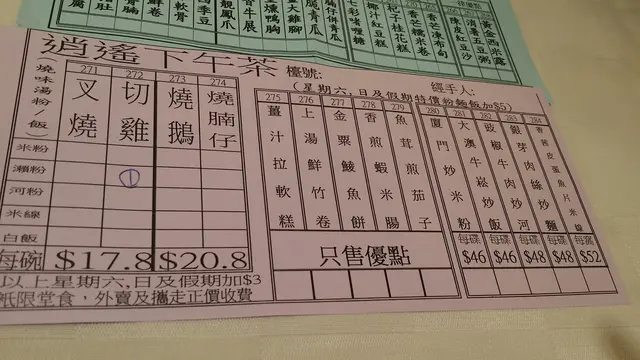 逍遙下午茶 檯號: 經手人:
(星期六,日及假期特價粉麵飯加$5)
(燒味湯粉/飯)
271 272 273 274
叉燒
切雞
燒鵝
燒腩仔
米粉
瀨粉 ①
河粉
米線
白飯
每碗 $17.8 $20.8
以上星期六,日及假期加$3
祇限堂食,外賣及攜走正價收費
275 276 277 278 279 280 281 282 283 284
薑汁拉軟糕
上湯鮮竹卷
金粟鯪魚餅
香煎蝦米腸
魚茸煎茄子
廈門炒米粉
大澳牛崧炒飯
豉椒牛肉炒河
銀芽肉絲炒麵
魚皮
魚片米線
只售優點
每碟 每碟 每碟 每碟 每窩
$46 $46 $48 $48 $52
黃金西米露
消暑綠豆沙
陳皮紅豆沙
香芝糯米卷
杞子桂花糕
椰汁紅豆糕